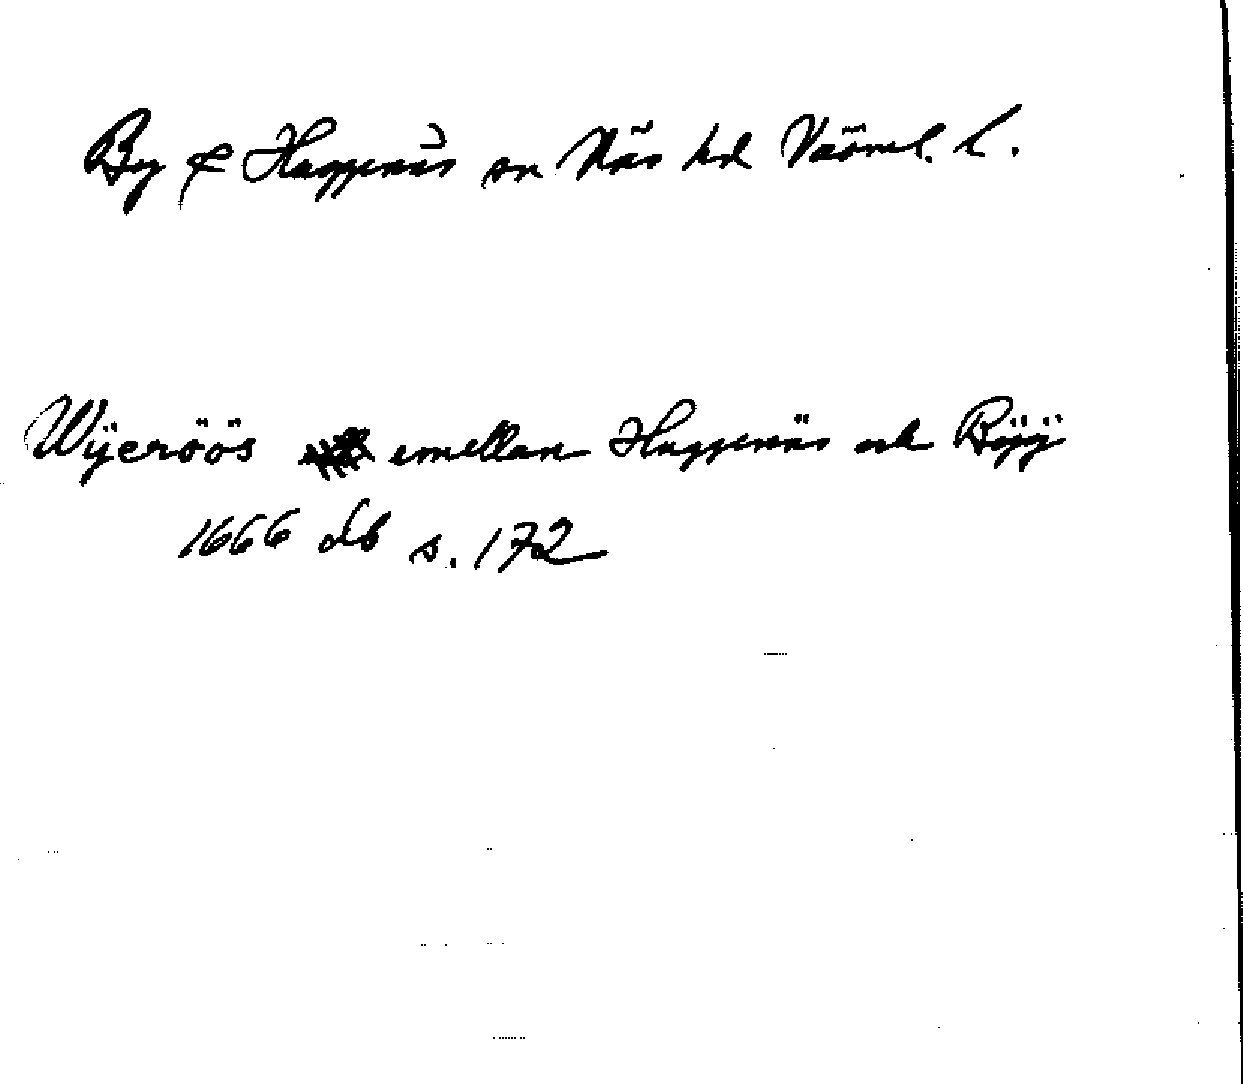 By & Huggenäs sn Näs hd Värml. l.
Wÿeröös emellan Huggenäs och Bÿÿ
1666 db s. 172